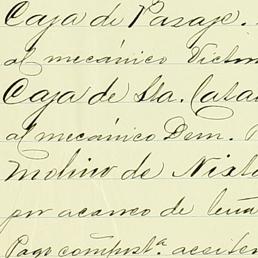 Caja de Pasaje.
al mecánico Victor
Caja de Sta. Cata
al mecánico Dem.
Molino de Nixta
por acarreo de leña
Pago compost.ª aceite